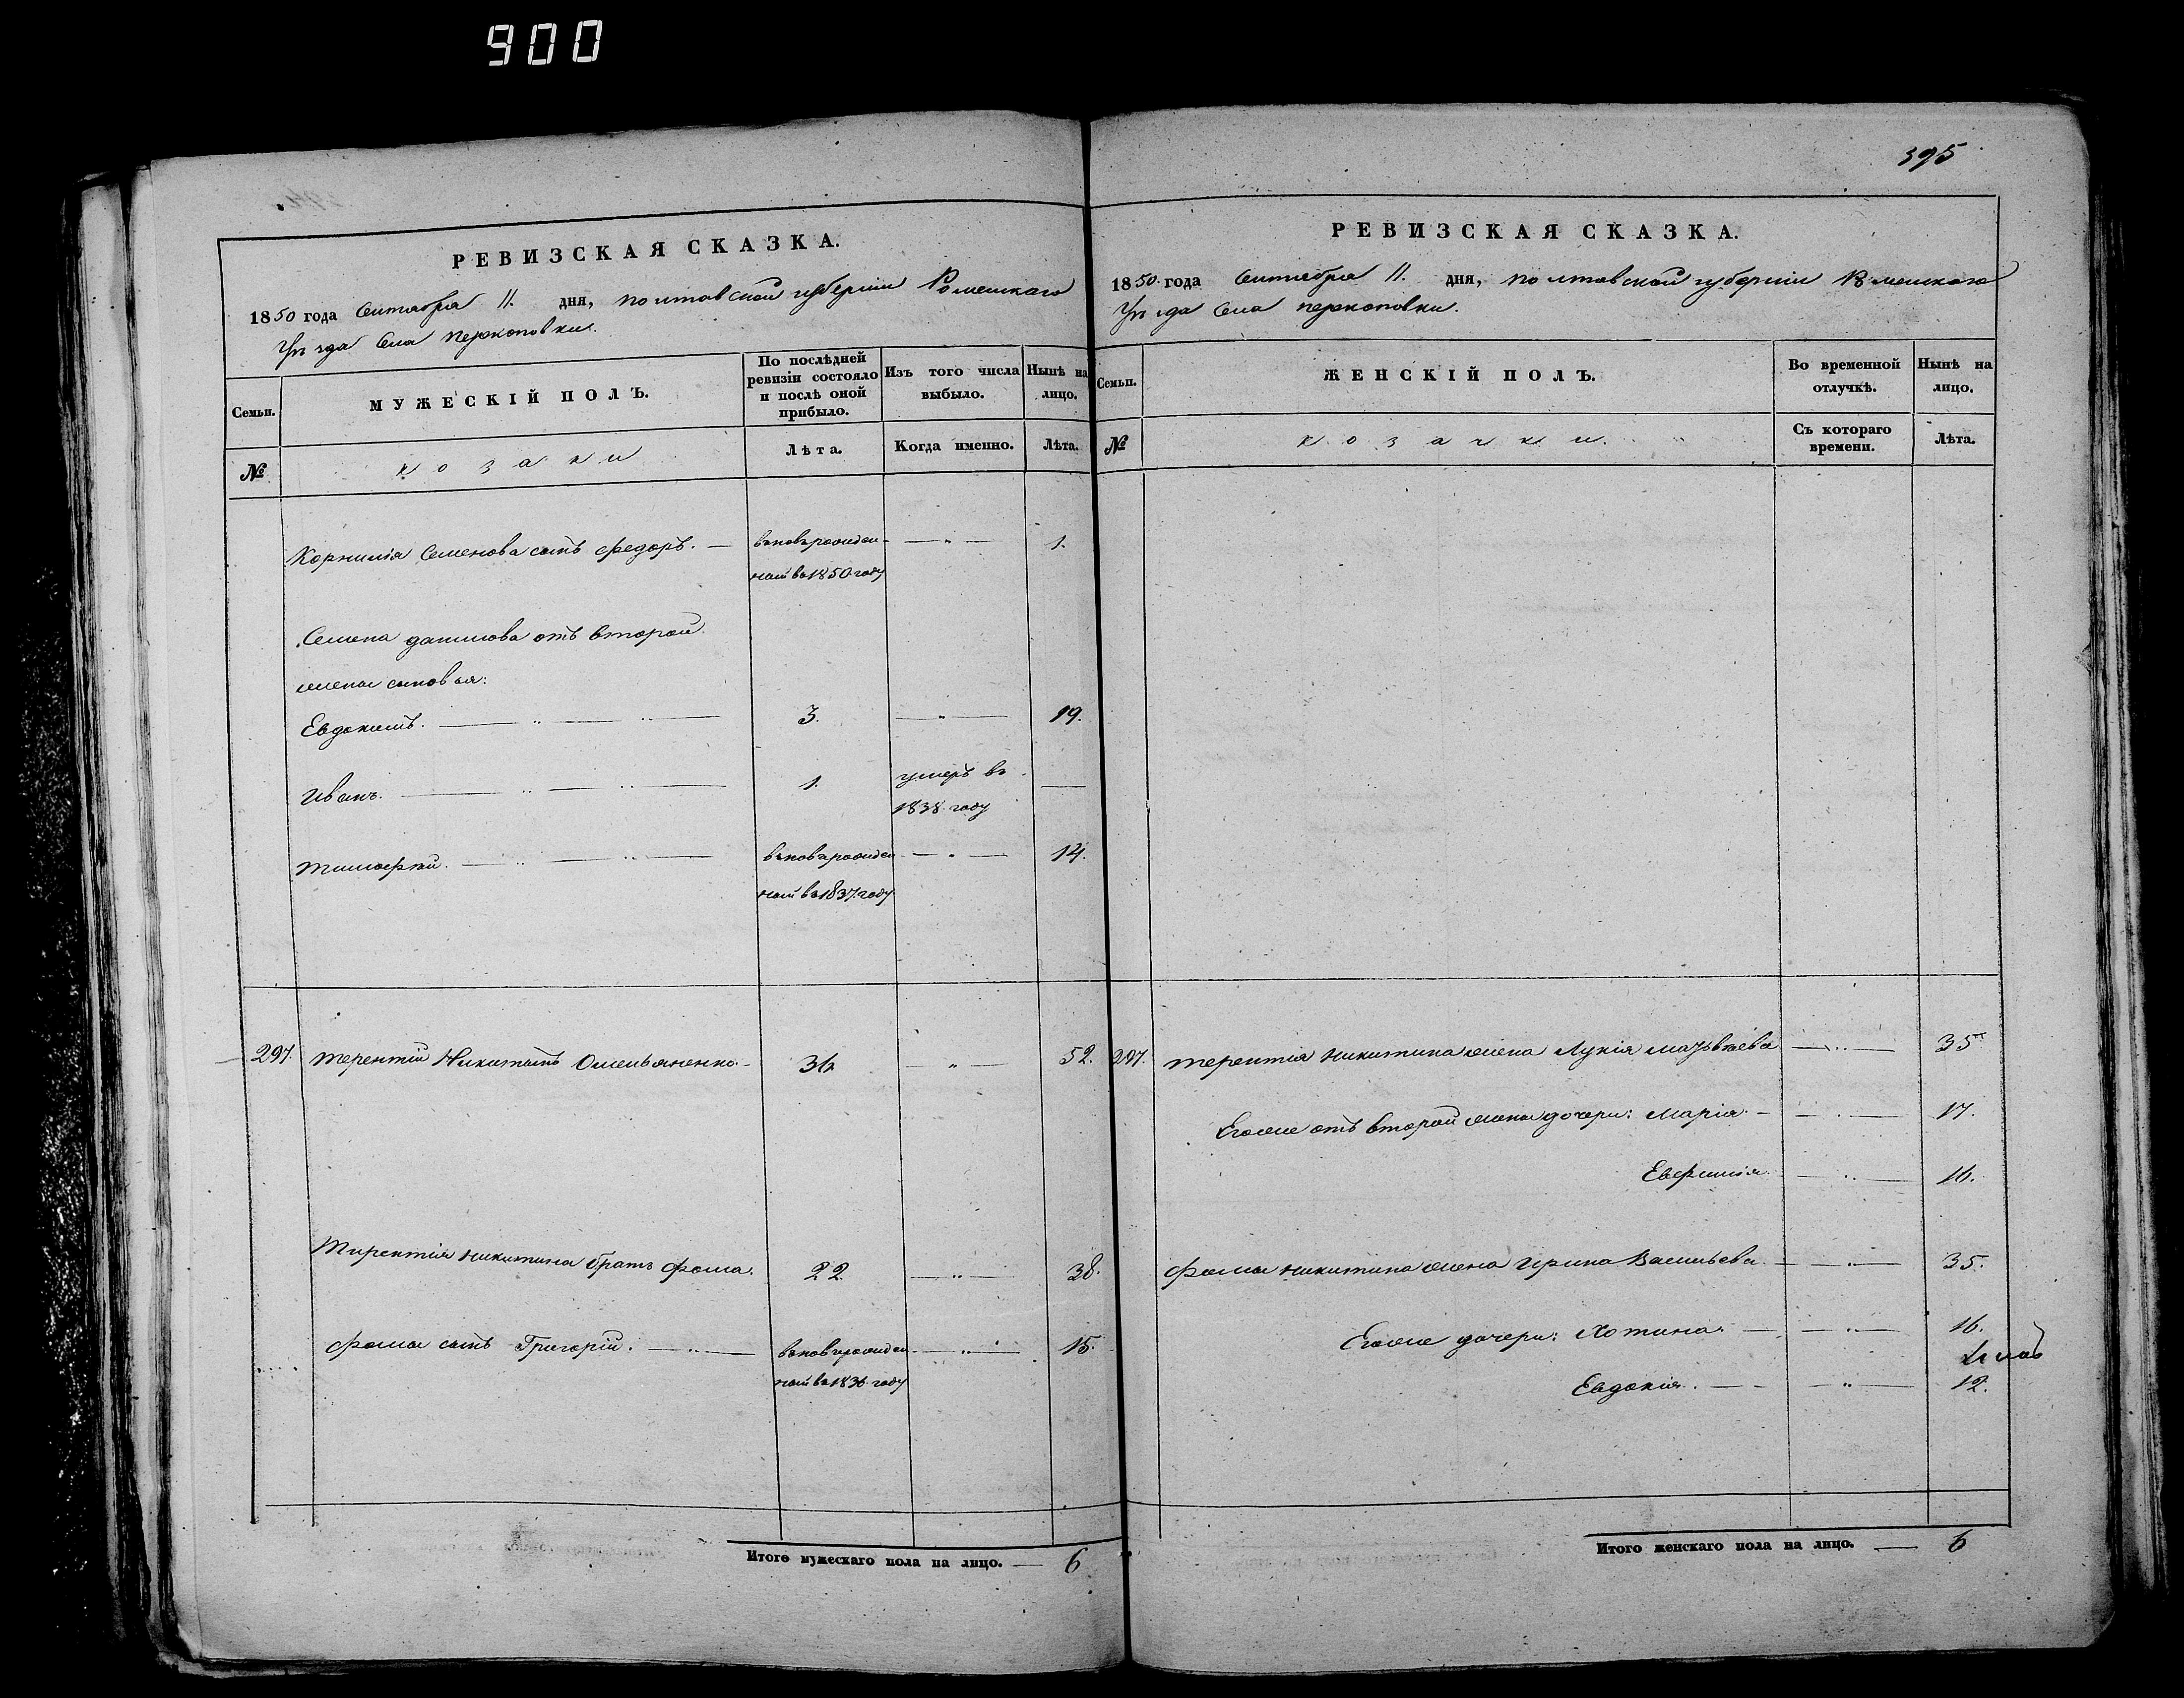 900
395
РЕВИЗСКАЯ СКАЗКА.
1850 года Сентября 11. дня, Полтавской губерніи Роменскаго
Уѣзда Села Перекоповки.
Семьи.
МУЖЕСКІЙ ПОЛЪ.
По послѣдней ревизіи состояло и послѣ оной прибыло.
Изъ того числа выбыло.
Нынѣ на лицо.
№
козаки
Лѣта.
Когда именно.
Лѣта.
Корнилія Семенова сынъ Федоръ. — вновь рожден- — „ — 1.
ный въ 1850 году
Семена Данилова отъ второй
жены сыновья:
Евдокимъ. 3. — „ — 19.
Иванъ. 1. умеръ въ —
1838 году
Тимофѣй. вновь рожден- — „ — 14.
ный въ 1837 году
297. Терентій Никитинъ Омельяненко. 36 — „ — 52.
Терентія Никитина братъ Фома. 22. — „ — 38.
Фомы сынъ Григорій. вновь рожден- — „ — 15.
ный въ 1836 году
Итого мужескаго пола на лицо. — 6
РЕВИЗСКАЯ СКАЗКА.
1850 года Сентября 11. дня, Полтавской губерніи Роменскаго
Уѣзда Села Перекоповки.
Семьи.
ЖЕНСКІЙ ПОЛЪ.
Во временной отлучкѣ.
Нынѣ на лицо.
№
козачки.
Съ котораго времени.
Лѣта.
297. Терентія Никитина жена Лукія Матвѣева — „ — 35
Егоже отъ второй жены дочери: Марія. — „ — 17.
Евфимія. — „ — 16.
Фомы Никитина жена Ирина Васильева. — „ — 35.
Егоже дочери: Хотина. — „ — 16.
Евдокія. — „ — 12.
Итого женскаго пола на лицо. — 6